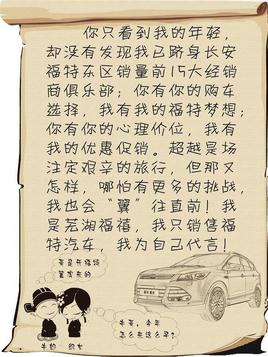 你只看到我的年轻，
却没有发现我已跻身长安
福特东区销量前15大经销
商俱乐部；你有你的购车
选择，我有我的福特梦想；
你有你的心理价位，我有
我的优惠促销。超越是场
注定艰辛的旅行，但那又
怎样，哪怕有更多的挑战，
我也会“翼”往直前！我
是芜湖福禧，我只销售福
特汽车，我为自己代言！
牛哥，今年
怎么来这么早？
牛郎
织女